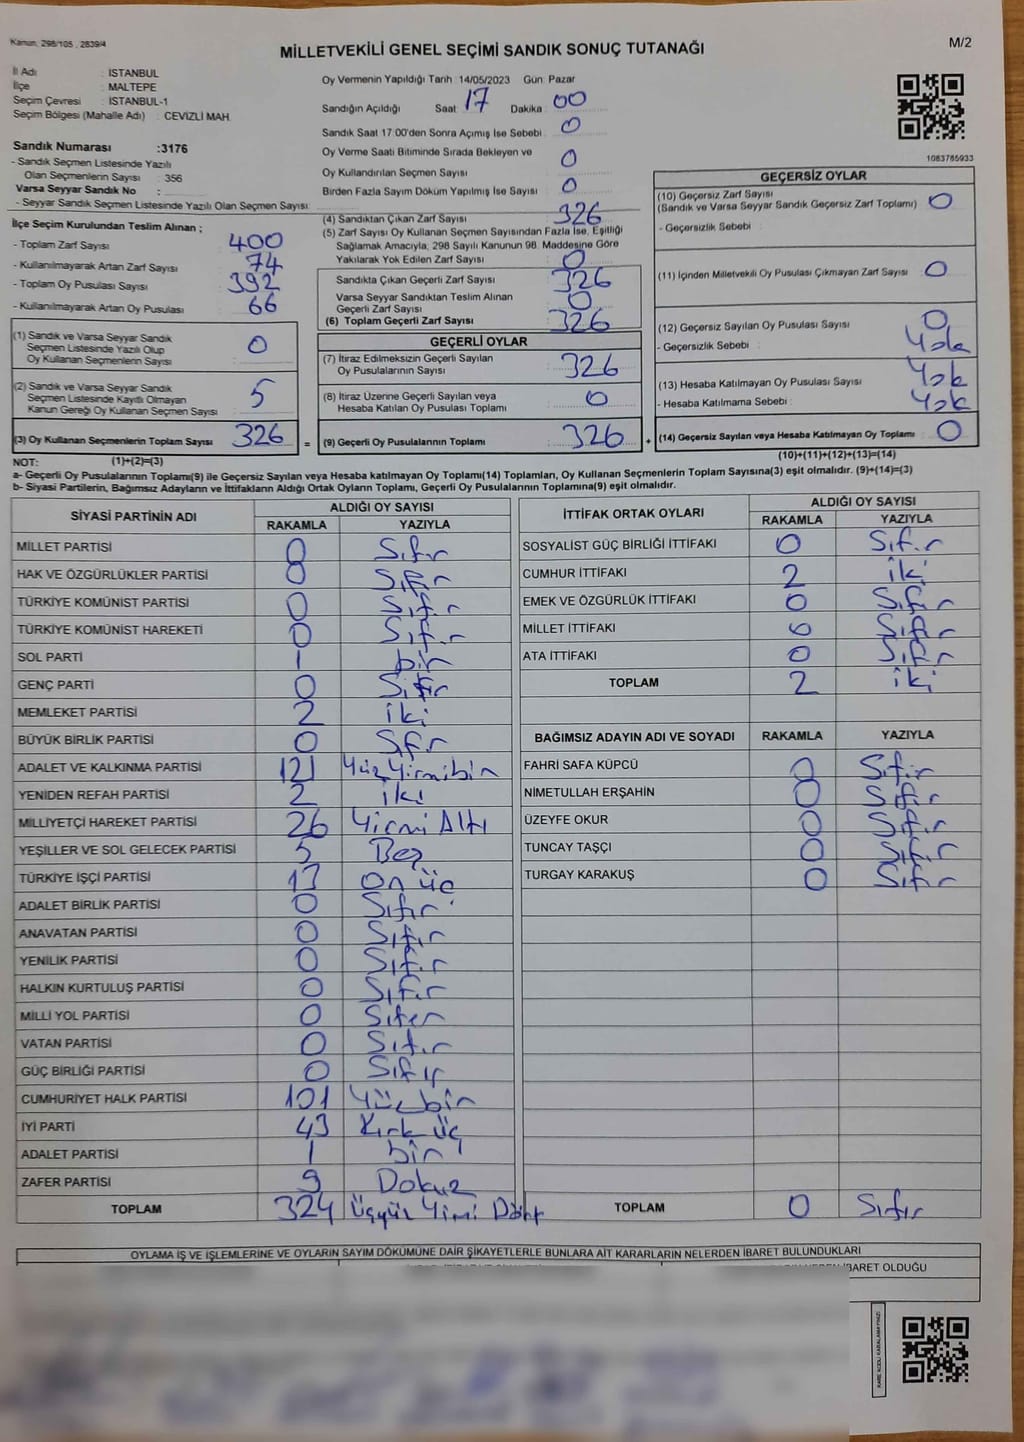 Kanun: 298/105 , 2839/4
MİLLETVEKİLİ GENEL SEÇİMİ SANDIK SONUÇ TUTANAĞI
M/2
İl Adı : İSTANBUL
İlçe : MALTEPE
Seçim Çevresi : İSTANBUL-1
Seçim Bölgesi (Mahalle Adı) : CEVİZLİ MAH.
Sandık Numarası :3176
- Sandık Seçmen Listesinde Yazılı
Olan Seçmenlerin Sayısı : 356
Varsa Seyyar Sandık No :
- Seyyar Sandık Seçmen Listesinde Yazılı Olan Seçmen Sayısı:
Oy Vermenin Yapıldığı Tarih :14/05/2023 Gün: Pazar
Sandığın Açıldığı Saat: 17 Dakika : 00
Sandık Saat 17:00'den Sonra Açımış İse Sebebi : 0
Oy Verme Saati Bitiminde Sırada Bekleyen ve
Oy Kullandırılan Seçmen Sayısı : 0
Birden Fazla Sayım Döküm Yapılmış İse Sayısı : 0
1083785933
İlçe Seçim Kurulundan Teslim Alınan ;
- Toplam Zarf Sayısı : 400
- Kullanılmayarak Artan Zarf Sayısı : 74
- Toplam Oy Pusulası Sayısı : 392
- Kullanılmayarak Artan Oy Pusulası : 66
(1) Sandık ve Varsa Seyyar Sandık
Seçmen Listesinde Yazılı Olup
Oy Kullanan Seçmenlerin Sayısı : 0
(2) Sandık ve Varsa Seyyar Sandık
Seçmen Listesinde Kayıtlı Olmayan
Kanun Gereği Oy Kullanan Seçmen Sayısı : 5
(3) Oy Kullanan Seçmenlerin Toplam Sayısı : 326
(4) Sandıktan Çıkan Zarf Sayısı : 326
(5) Zarf Sayısı Oy Kullanan Seçmen Sayısından Fazla İse, Eşitliği
Sağlamak Amacıyla, 298 Sayılı Kanunun 98. Maddesine Göre
Yakılarak Yok Edilen Zarf Sayısı : 0
Sandıkta Çıkan Geçerli Zarf Sayısı : 326
Varsa Seyyar Sandıktan Teslim Alınan
Geçerli Zarf Sayısı : 0
(6) Toplam Geçerli Zarf Sayısı : 326
GEÇERLİ OYLAR
(7) İtiraz Edilmeksizin Geçerli Sayılan
Oy Pusulalarının Sayısı : 326
(8) İtiraz Üzerine Geçerli Sayılan veya
Hesaba Katılan Oy Pusulası Toplamı : 0
= (9) Geçerli Oy Pusulalarının Toplamı : 326
GEÇERSİZ OYLAR
(10) Geçersiz Zarf Sayısı
(Sandık ve Varsa Seyyar Sandık Geçersiz Zarf Toplamı) : 0
- Geçersizlik Sebebi :
(11) İçinden Milletvekili Oy Pusulası Çıkmayan Zarf Sayısı : 0
(12) Geçersiz Sayılan Oy Pusulası Sayısı : 0
- Geçersizlik Sebebi : Yok
(13) Hesaba Katılmayan Oy Pusulası Sayısı : Yok
- Hesaba Katılmama Sebebi : Yok
+ (14) Geçersiz Sayılan veya Hesaba Katılmayan Oy Toplamı : 0
NOT: (1)+(2)=(3)
(10)+(11)+(12)+(13)=(14)
a- Geçerli Oy Pusulalarının Toplamı(9) ile Geçersiz Sayılan veya Hesaba katılmayan Oy Toplamı(14) Toplamları, Oy Kullanan Seçmenlerin Toplam Sayısına(3) eşit olmalıdır. (9)+(14)=(3)
b- Siyasi Partilerin, Bağımsız Adayların ve İttifakların Aldığı Ortak Oyların Toplamı, Geçerli Oy Pusulalarının Toplamına(9) eşit olmalıdır.
SİYASİ PARTİNİN ADI ALDIĞI OY SAYISI
RAKAMLA YAZIYLA
MİLLET PARTİSİ 0 Sıfır
HAK VE ÖZGÜRLÜKLER PARTİSİ 0 Sıfır
TÜRKİYE KOMÜNİST PARTİSİ 0 Sıfır
TÜRKİYE KOMÜNİST HAREKETİ 0 Sıfır
SOL PARTİ 1 bir
GENÇ PARTİ 0 Sıfır
MEMLEKET PARTİSİ 2 iki
BÜYÜK BİRLİK PARTİSİ 0 Sıfır
ADALET VE KALKINMA PARTİSİ 121 Yüzyirmibir
YENİDEN REFAH PARTİSİ 2 iki
MİLLİYETÇİ HAREKET PARTİSİ 26 Yirmi Altı
YEŞİLLER VE SOL GELECEK PARTİSİ 5 Beş
TÜRKİYE İŞÇİ PARTİSİ 13 on üç
ADALET BİRLİK PARTİSİ 0 Sıfır
ANAVATAN PARTİSİ 0 Sıfır
YENİLİK PARTİSİ 0 Sıfır
HALKIN KURTULUŞ PARTİSİ 0 Sıfır
MİLLİ YOL PARTİSİ 0 Sıfır
VATAN PARTİSİ 0 Sıfır
GÜÇ BİRLİĞİ PARTİSİ 0 Sıfır
CUMHURİYET HALK PARTİSİ 101 Yüzbir
İYİ PARTİ 43 Kırk üç
ADALET PARTİSİ 1 bir
ZAFER PARTİSİ 9 Dokuz
TOPLAM 324 üçyüz Yirmi Dört
İTTİFAK ORTAK OYLARI ALDIĞI OY SAYISI
RAKAMLA YAZIYLA
SOSYALİST GÜÇ BİRLİĞİ İTTİFAKI 0 Sıfır
CUMHUR İTTİFAKI 2 iki
EMEK VE ÖZGÜRLÜK İTTİFAKI 0 Sıfır
MİLLET İTTİFAKI 0 Sıfır
ATA İTTİFAKI 0 Sıfır
TOPLAM 2 iki
BAĞIMSIZ ADAYIN ADI VE SOYADI RAKAMLA YAZIYLA
FAHRİ SAFA KÜPCÜ 0 Sıfır
NİMETULLAH ERŞAHİN 0 Sıfır
ÜZEYFE OKUR 0 Sıfır
TUNCAY TAŞÇI 0 Sıfır
TURGAY KARAKUŞ 0 Sıfır
TOPLAM 0 Sıfır
OYLAMA İŞ VE İŞLEMLERİNE VE OYLARIN SAYIM DÖKÜMÜNE DAİR ŞİKAYETLERLE BUNLARA AİT KARARLARIN NELERDEN İBARET BULUNDUKLARI
İBARET OLDUĞU